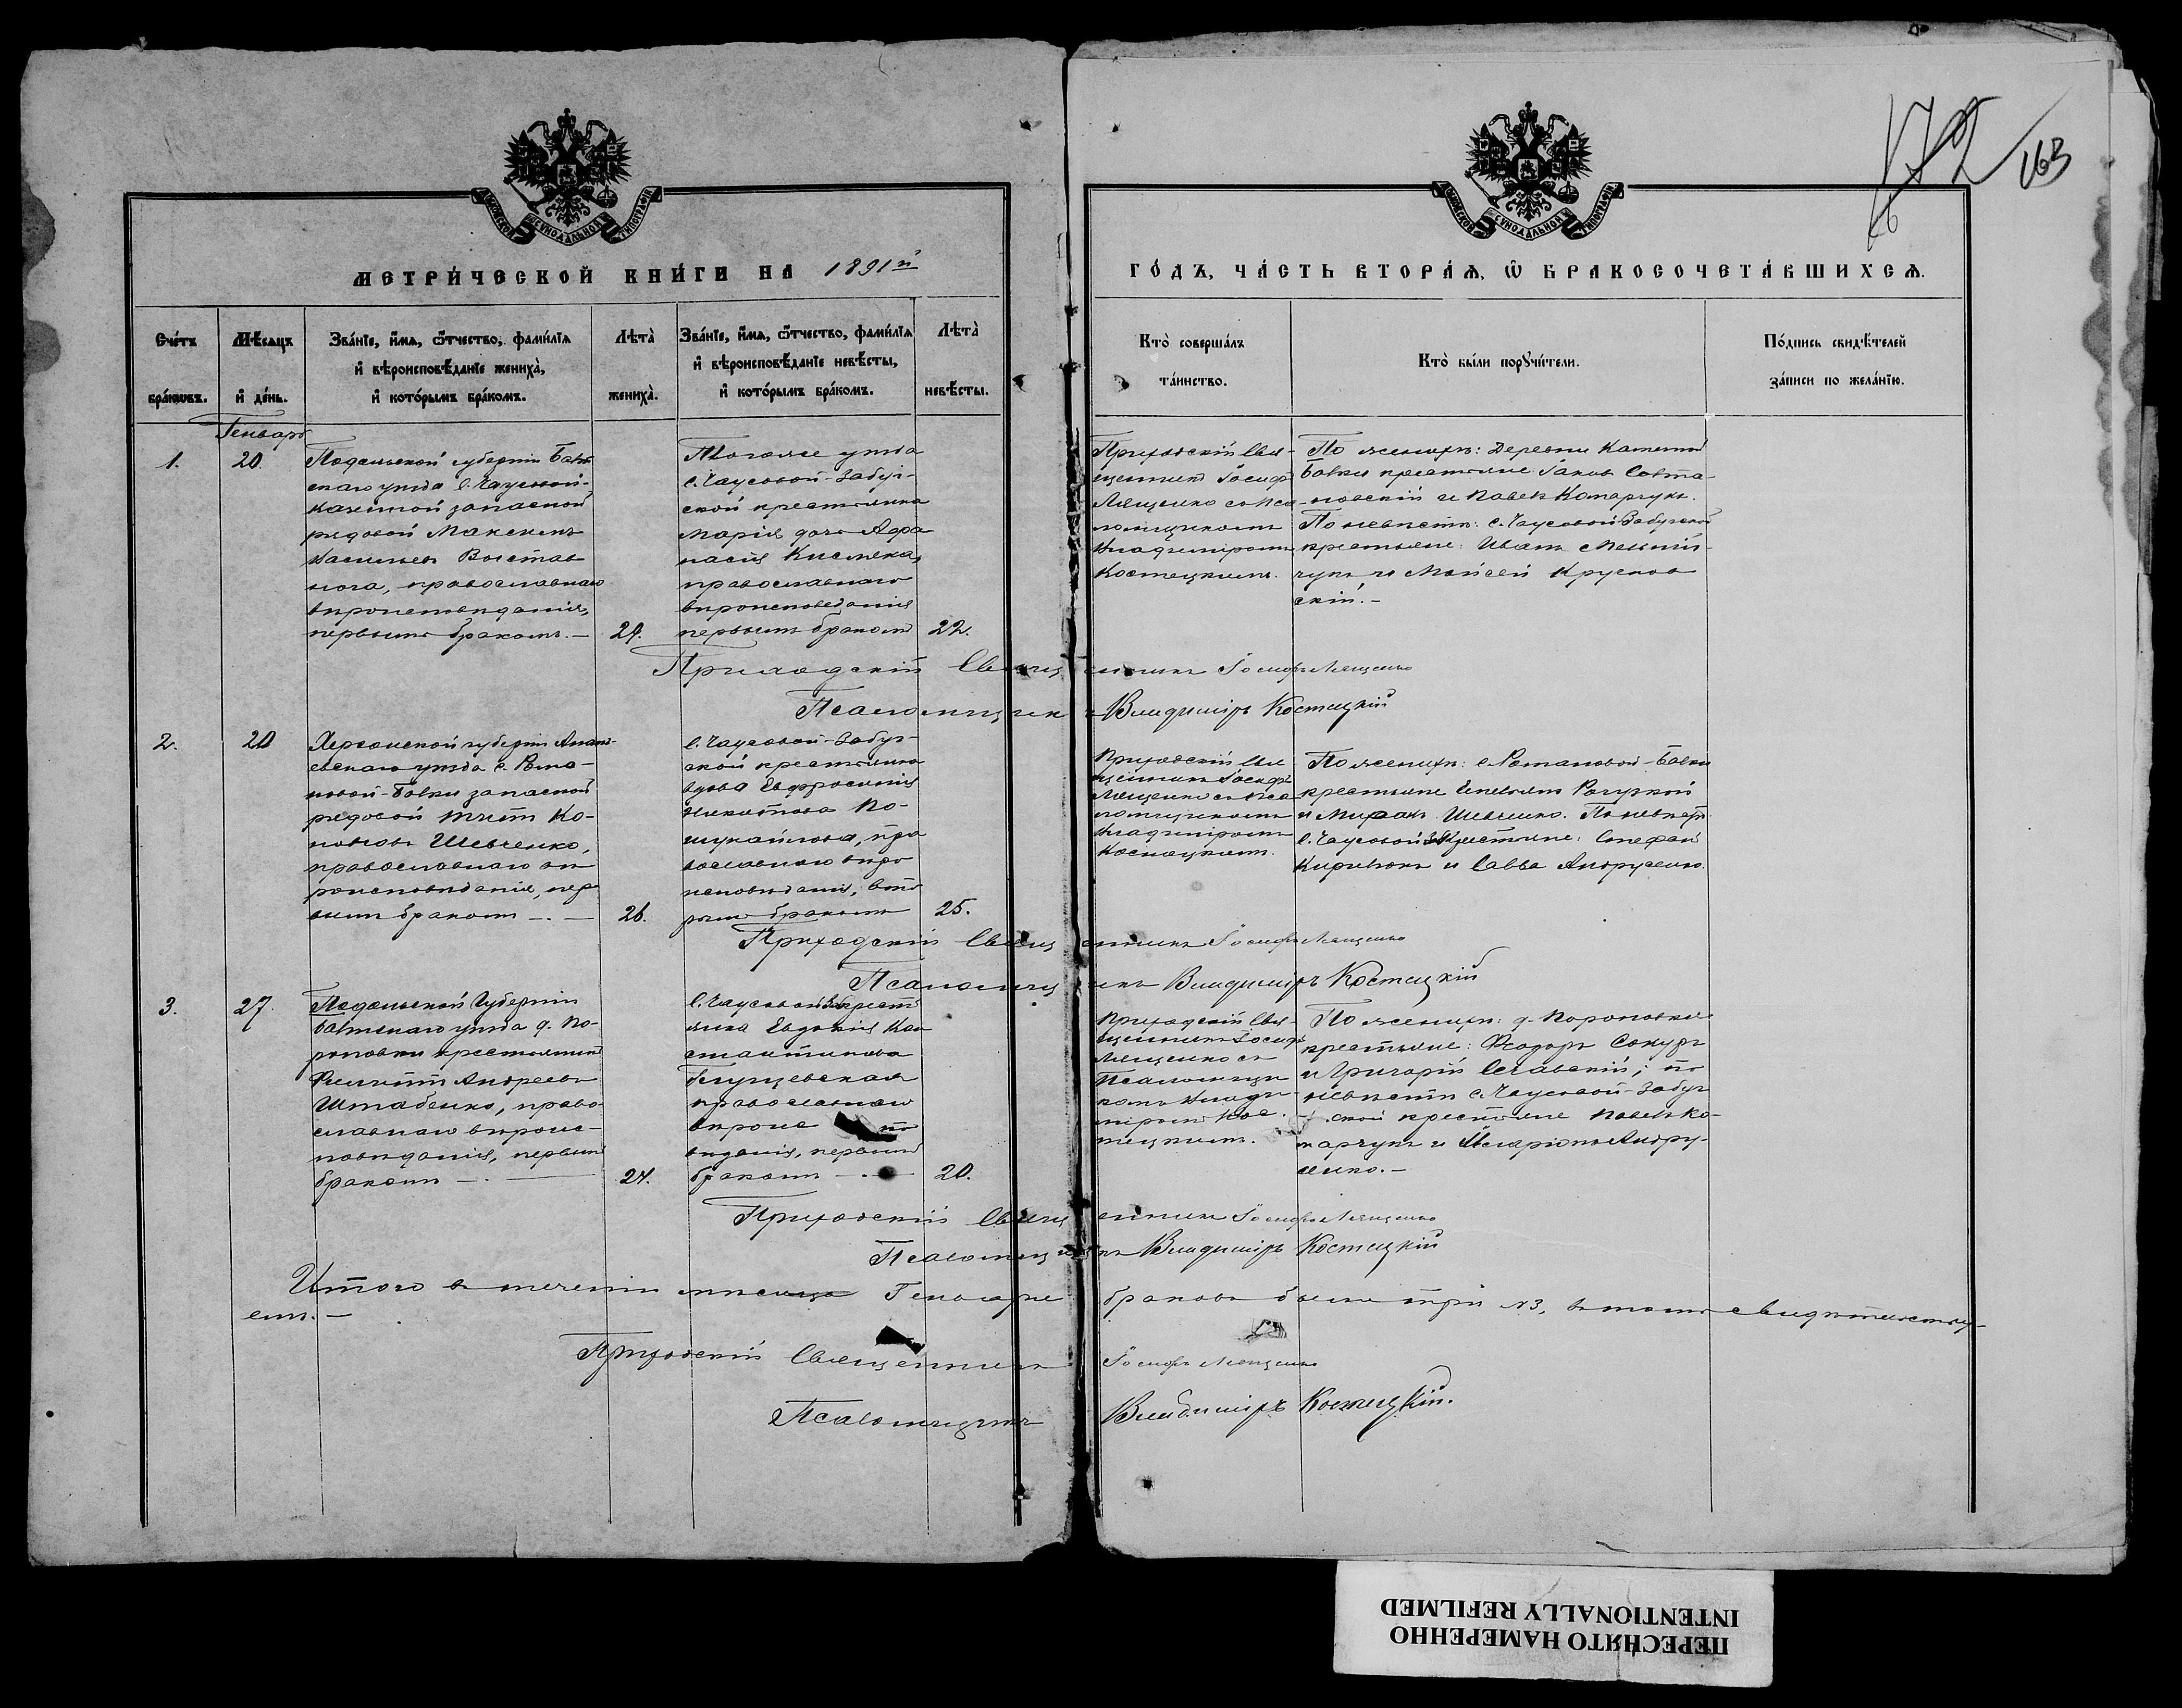 172 163
МЕТРИ́ЧЕСКОЙ КНИ́ГИ НА 1891й
ГО́ДЪ, ЧА́СТЬ ВТОРА́Ѧ, Ѽ БРАКОСОЧЕТА́ВШИХСѦ.
Сче́тъ бра́кѡвъ.
Мѣ́сяцъ и де́нь.
Зва́нїе, и́мѧ, ѻ҆́тчество, фами́лїѧ
и҆ вѣроисповѣ́данїе жениха̀,
и҆ кото́рымъ бра́комъ.
Лѣта̀ жениха̀.
Зва́нїе, и́мѧ, ѻ҆́тчество, фами́лїѧ
и҆ вѣроисповѣ́данїе невѣ́сты,
и҆ кото́рымъ бра́комъ.
Лѣта̀ невѣ́сты.
Кто̀ соверша́лъ
та́инство.
Кто̀ бы́ли порꙋчи́тели.
По́дпись свидѣ́телей
за́писи по жела́нїю.
Генварь
1.
20.
Подольской губерніи Балт
скаго уѣзда с. Чаусовой-
запасной
рядовой Максимъ
Васильевъ
православнаго
вѣроисповѣданія,
первымъ бракомъ. —
24.
Того же уѣзда
с. Чаусовой-Забуг-
ской крестьянка
Марія дочь Афа
насія Кисляка,
православнаго
вѣроисповеданія
первымъ бракомъ
22.
Приходскій Свя-
щенникъ Іосифъ
Лященко съ Пса-
ломщикомъ
Владиміромъ
Костецкимъ.
По женихѣ: Деревни Каменной
Балки крестьяне Іаковъ Савта-
новскій и Павелъ Комарчукъ.
По невѣстѣ: с. Чаусовой Забугской
крестьяне: Иванъ Мельни-
чукъ и Мойсей Крусков
скій. —
Приходскій Священникъ Іосифъ Лященко
Псаломщикъ Владиміръ Костецкій
2.
20
Херсонской губерніи Анань-
евскаго уѣзда с. Рома-
новой-Балки запасной
рядовой Титъ Ко-
Шевченко,
православнаго вѣ
роисповѣданія, пер
вымъ бракомъ —. —
26.
с. Чаусовой-Забуг-
ской крестьянка
вдова Евфросинія
Никитова
пра
вославнаго вѣро
исповѣданія, вто
рымъ бракомъ
25.
Приходскій Свя
щенникъ Іосифъ
Лященко съ Пса
ломщикомъ
Владиміромъ
Костецкимъ.
По женихѣ: с. Романовой-Балки
крестьяне
и Шевченко. По невѣстѣ
с. Чаусовой Заб крестьяне: Стефанъ
и Савва Андрусенко.
Приходскій Священникъ Іосифъ Лященко
Псаломщикъ Владиміръ Костецкій
3.
27.
Подольской Губерніи
Балтскаго уѣзда д. По-
роповки крестьянинъ
Филиппъ Андреевъ
Штабенко, право
славнаго вѣроис-
повѣданія, первымъ
бракомъ —. —
24.
с. Чаусовой Заб крестьянка
Евдокія Кон
стантинова
православнаго
вѣроис по
вѣданія, первымъ
бракомъ —. —
20.
Приходскій Свя-
щенникъ Іосифъ
Лященко съ
Псаломщи
комъ Влади-
міромъ Кос-
тецкимъ.
По женихѣ: д. Пороповки
крестьяне: Феодоръ Сокуръ
и Григорій Сclавскій; по
невѣстѣ с. Чаусовой-Забуг
ской крестьяне Павелъ Ко-
марчукъ и Иларіонъ Андру-
сенко. —
Приходскій Священникъ Іосифъ Лященко
Псаломщикъ Владиміръ Костецкій
Итого въ теченіи мѣсяца Генваря браковъ было три №3, въ томъ свидѣтельству-
емъ. —
Приходскій Священникъ Іосифъ Лященко
Псаломщикъ Владиміръ Костецкій.
ПЕРЕСНЯТО НАМЕРЕННО
INTENTIONALLY REFILMED